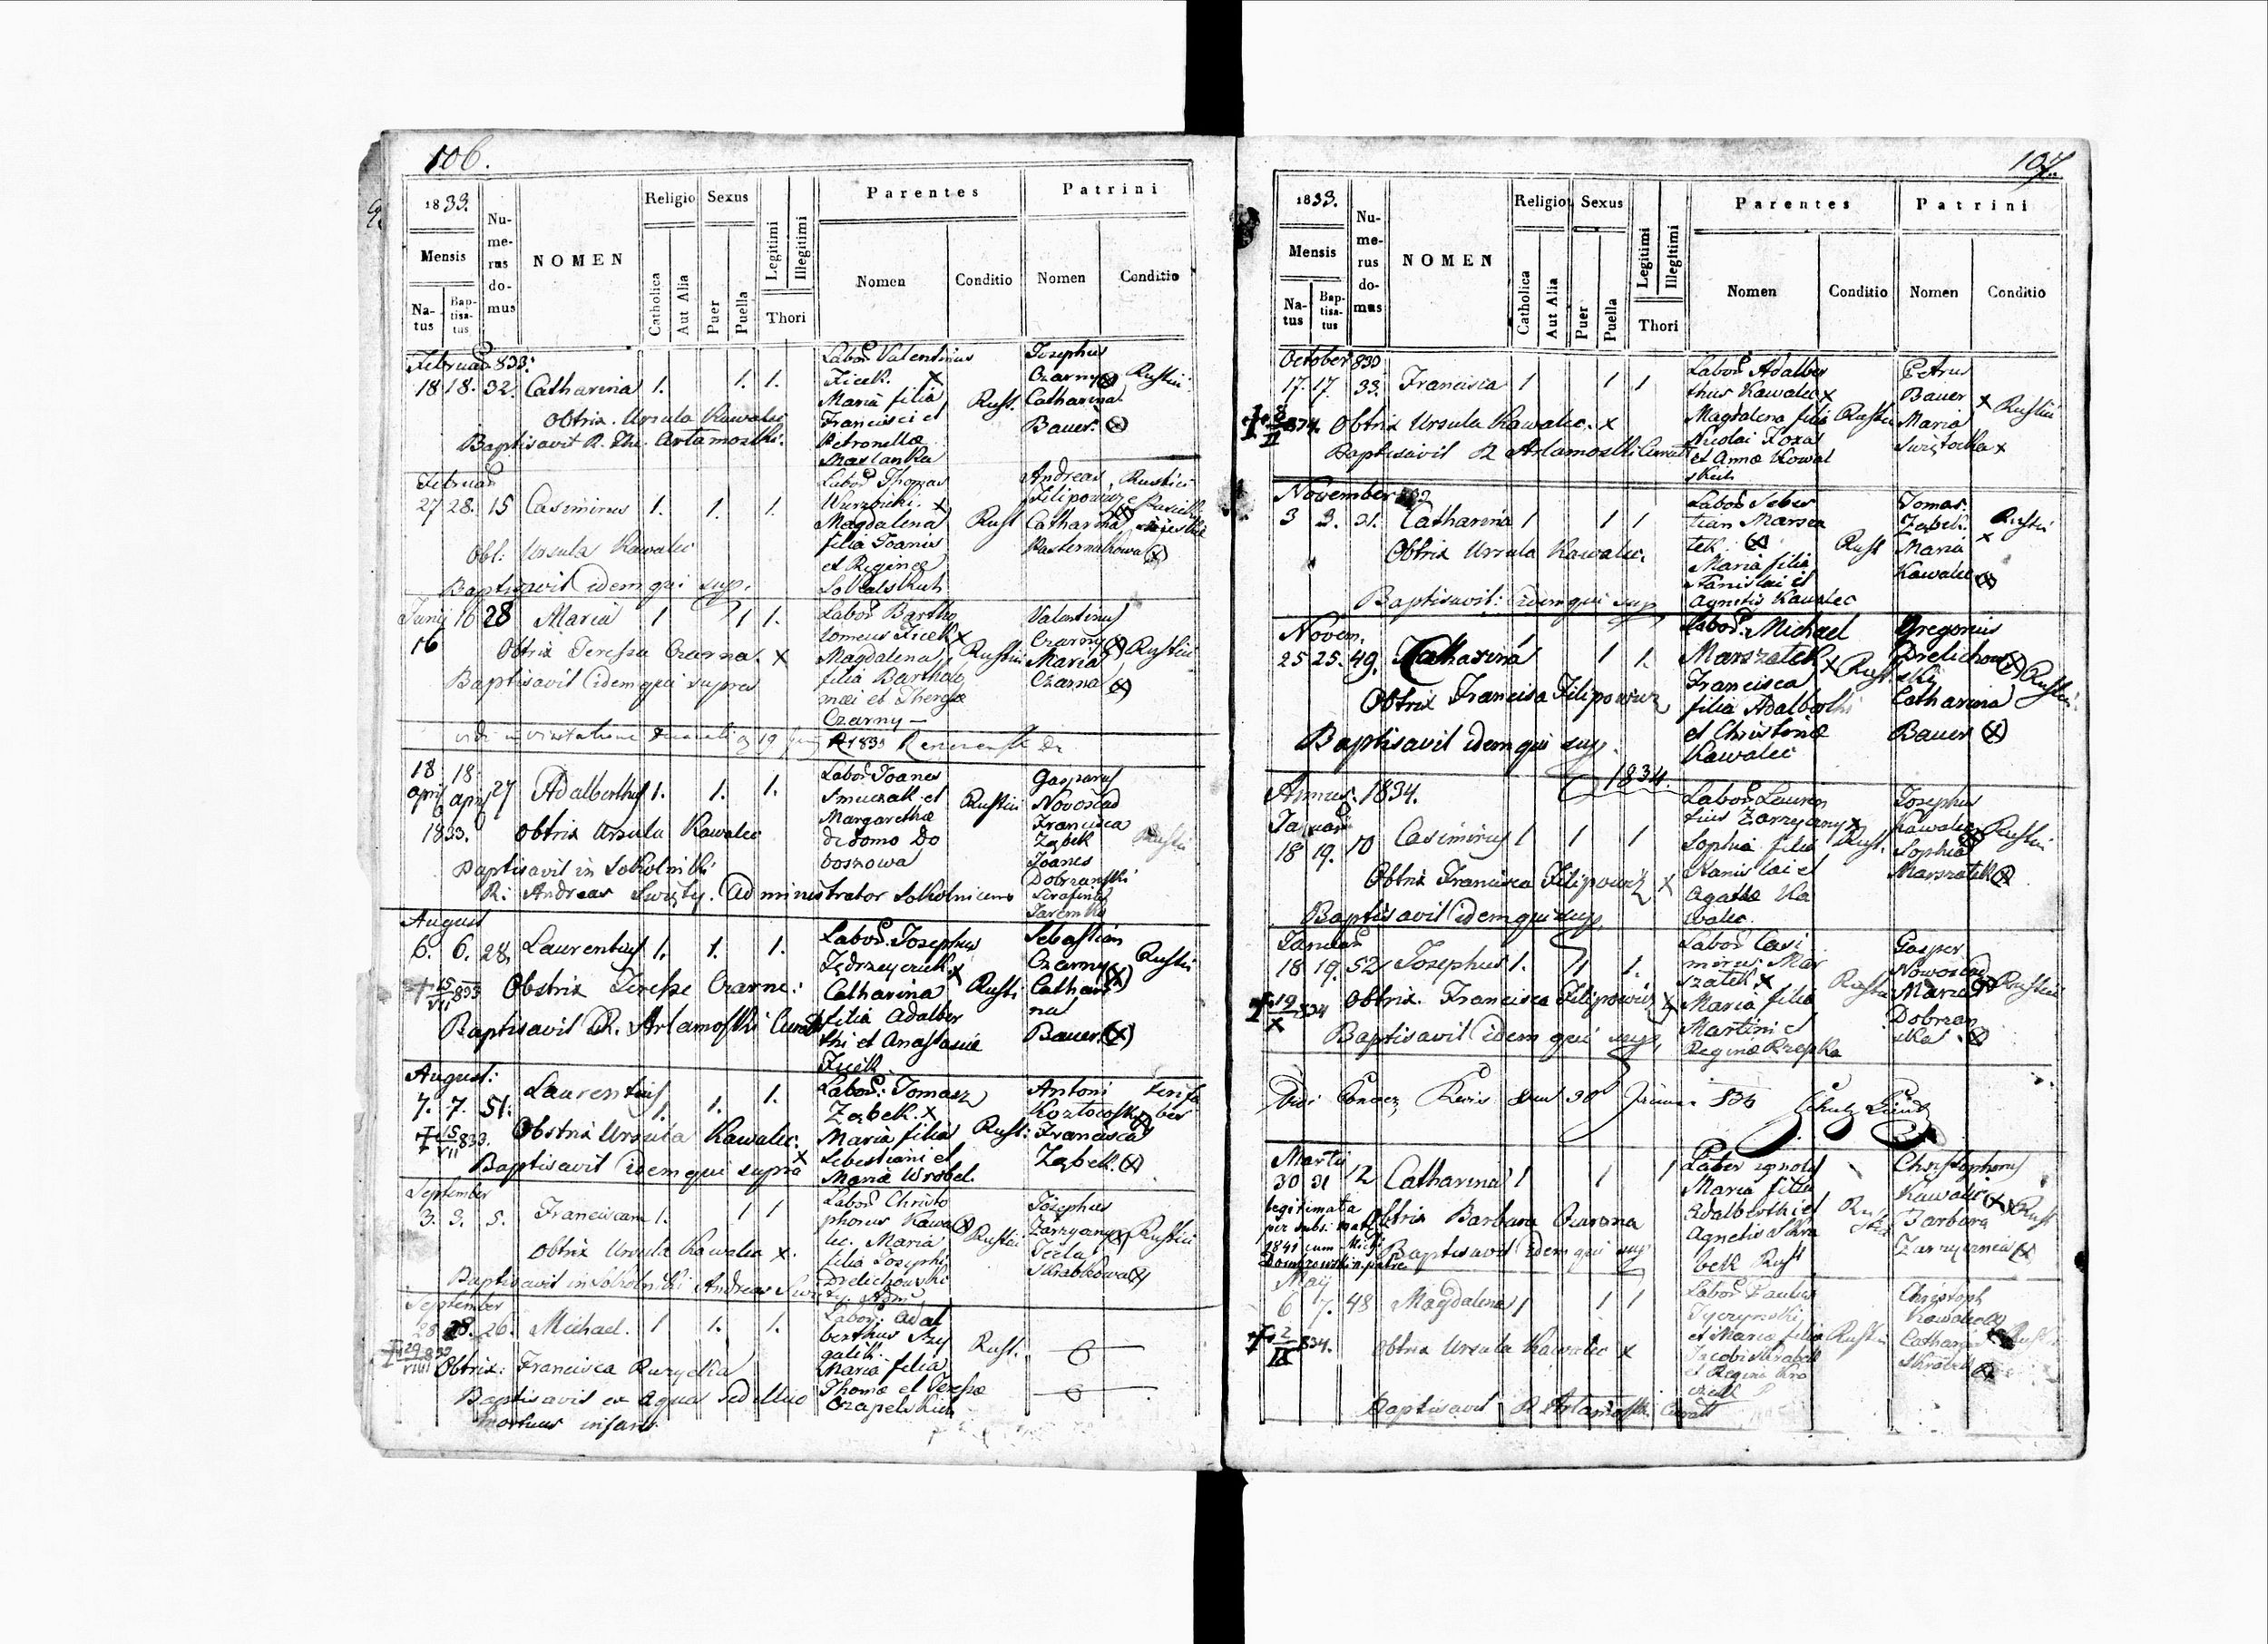 106.
1833.
Mensis
Na-
tus
Bap-
tisa-
tus
Nu-
me-
rus
do-
mus
NOMEN
Religio
Catholica
Aut Alia
Sexus
Puer
Puella
Legitimi
Illegitimi
Thori
Parentes
Nomen
Conditio
Patrini
Nomen
Conditio
Februar 833.
18 18. 32. Catharina 1. 1. 1.
Obtrix. Ursula Kawalec
Baptisavit R. Artamoski.
Labor. Valentinus
Ficek. x
Maria filia
Francisci et
Petronellæ
Maslanka
Rust.
Josephus
Czarny
Catharina
Bauer.
Rustici
Februar
27 28. 15 Casimirus 1. 1. 1.
Obt: Ursula Kawalec
Baptisavit idem qui sup.
Labor Thomas
x
Magdalena
filia Joanis
et Reginæ
Rust
Andreas
Filipowicz
Catharina
Pasternakowa
Rustici
Junij 16 28 Maria 1 1 1.
16
Obtrix Teressa Czarna. x
Baptisavit idem qui supra
Labor Bartho
lomeus Ficek x
Magdalena
filia Bartholo
mæi et Theresæ
Czarny —
Rustici
Valentinus
Czarny
Maria
Czarna
Rustici
18 18
apri apri 27 Adalberthus 1. 1. 1.
1833. Obtrix Ursula Kawalec
Baptisavit in Sokolniki
R: Andreas Swięty. Administrator Sokolnicens
Labor Joanes
Smuczak et
Margarethæ
de domo Do
boszowa
Rustici
Gasparus
Nowosad
Francisca
Ząbek
Joanes
Dobrzański
Serafina
Jaremko
Rustici
August
6. 6. 28. Laurentius 1. 1. 1.
+ 15/VII 833 Obstrix Teresse Czarne.
Baptisavit R. Artamoski Curatt
Labor. Josephus
Jędrzeyczuk x
Catharina
filia Adalber
thi et Anastasiæ
Ficek
Rusti
Sebastian
Czarny
Cathari
na
Bauer
Rustici
August:
7. 7. 51. Laurentius 1. 1. 1.
+ 15/VII 833. Obstrix Ursula Kawalec. x
Baptisavit idem qui supra
Labor: Tomasz
Ząbek. x
Maria filia
Sebestiani et
Mariæ Wrobel.
Rust:
Antoni
Kozłowski
Francisca
Ząbek.
September
3. 3. 5. Franciscam 1. 1 1
Obtrix Ursula Kawalec x.
Baptisavit in Sokolniki Andreas Swięty. Adm
Labor Christo
phorus Kawa
lec. Maria
filia Josephi
Drelichowski
Rustici
Josephus
Zarzyczny
Tecla
Skrabkowa
Rustici
September
28 28. 26. Michael. 1 1. 1.
+ 29/VIIII 833
Obtrix: Francisca Ruzycka
Baptisavit ex aqua sed illico
mortuus infans
Labor: Adal
berthus Szy
galik.
Maria filia
Thomæ et Teressæ
Czapelskich
Rust.
107.
1833.
Mensis
Na-
tus
Bap-
tisa-
tus
Nu-
me-
rus
do-
mus
NOMEN
Religio
Catholica
Aut Alia
Sexus
Puer
Puella
Legitimi
Illegitimi
Thori
Parentes
Nomen
Conditio
Patrini
Nomen
Conditio
October 833
17. 17. 33. Francisca 1 1 1
+ 8/II 874. Obtrix Ursula Kawalec. x
Baptisavit R Artamoski Curatt
Labor Adalber
thus Kawalec x
Magdalena filia
Nicolai Kozas
et Annæ Kowal
skich
Rustici
Petrus
Bauer x
Maria
Swiętocka x
Rustici
November
3 3. 31. Catharina 1 1 1
Obtrix Ursula Kawalec.
Baptisavit: idem qui sup
Labor Sebes
tian Marsza
łek.
Maria filia
Stanislai et
Agnetis Kawalec
Rust
Tomas.
Ząbek. x
Maria
Kawalec
Rustici
Novem.
25 25. 49. Catharina 1 1 1.
Obtrix Francisca Filipowicz
Baptisavit idem qui sup.
Labor. Michael
Marszałek x
Francisca
filia Adalberthi
et Christinæ
Kawalec
Rust.
Gregorius
Drelichow
ski
Catharina
Bauer
Rustici
1834.
Annus. 1834.
Januar
18 19. 10 Casimirus 1 1 1
Obtrix Francisca Filipowicz x
Baptisavit idem qui sup.
Labor Lauren
tius Zarzyczny x
Sophia filia
Stanislai et
Agathæ Ka
walec.
Rust.
Josephus
Kawalec
Sophia
Marszałek
Rustici
Januar
18 19. 52 Josephus 1. 1 1.
+ 19/X 834 Obtrix. Francisca Filipowicz x
Baptisavit idem qui sup.
Labor Casi
mirus Mar
szałek x
Maria filia
Martini et
Reginæ Rzepka
Rustici
Gasper
Nowosad
Maria
Dobrzan
ska
Rustici
Marti
30 31 12 Catharina 1 1 1
legitimata
per subs. matr.
1841 cum Mich:
Dombrowski patre
Obtrix Barbara Czarna
Baptisavit idem qui sup
Pater ignotus
Maria filia
Adalberthi et
Agnetis Skra
bek Rust
Christophorus
Kawalec x
Barbara
Zarzycznia
Rust
May
6 7. 48 Magdalena 1 1 1
+ 2/IX 834. Obtrix Ursula Kawalec x
Baptisavit R Artamoski Curatt
Labor Paulus
Tyczynski
et Maria filia
Jacobi Skrabek
et Regina
Rustici
Christoph
Kawalec
Catharina
Skrabek